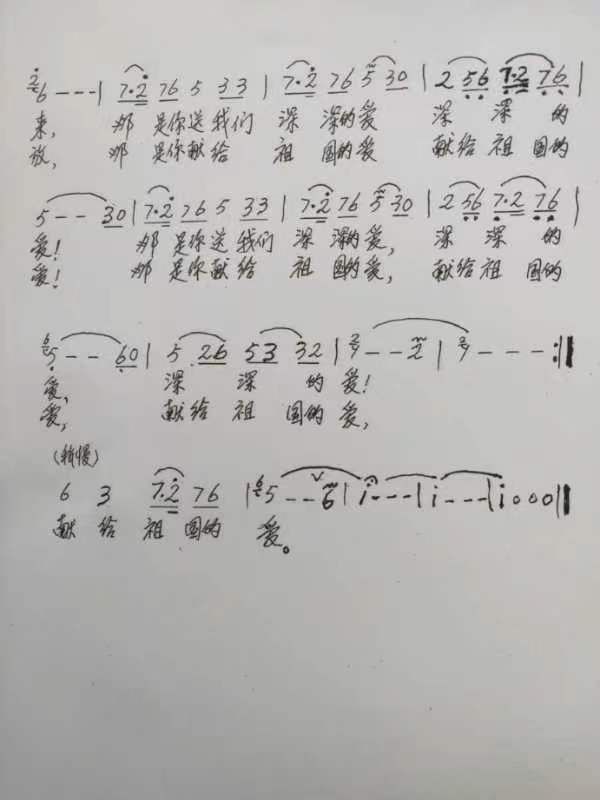 2 6 - - - | 7·2 76 5 33 | 7·2 76 5 30 | 2 56 7·2 76 |
来, 那 是你送 我们 深 深的爱 深 深 的
放, 那 是你献给 祖 国的爱 献给 祖 国的
5 - - 30 | 7·2 76 5 33 | 7·2 76 5 30 | 2 56 7·2 76 |
爱! 那 是你送 我们 深 深的爱, 深 深 的
爱! 那 是你献给 祖 国的爱, 献给 祖 国的
6 5 - - 60 | 5 26 53 32 | - - 2 | - - - :||
爱, 深 深 的 爱!
爱, 献给 祖 国的 爱,
(稍慢)
6 3 7·2 76 | 6 5 - - 6 | i - - - | i - - - | i 0 0 0 ||
献 给 祖 国的 爱。